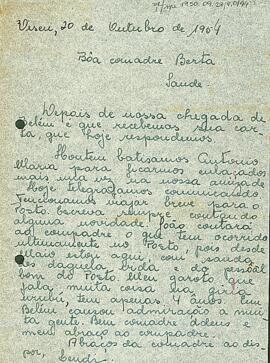 Viseu, 20 de Outubro de 1954
Bôa comadre Berta
Saude
Depois de nossa chegada de
Belém e que recebemos sua car-
ta, que hoje respondemos
Hontem batisamos Antonio
Maria para ficarmos enlaçados
mais uma vez na nossa amizade
Hoje telegrafamos comunicando
Tencionamos viajar breve para o
Porto. Escreva sempre, contando
alguma novidade João contará
ao compadre o que tem ocorrido
ultimamente no Porto, pois desde
Maio estou aqui, com saudo-
es daquela vida e do pessoal
bom do Porto Meu garoto que
fala muita coisa na giria
urubú, tem apenas 4 anos. Em
Belém causou admiração a mui-
ta gente. Bem comadre, adeus e
meu abraço ao compadre.
Abraços da comadre ao dis-
por,